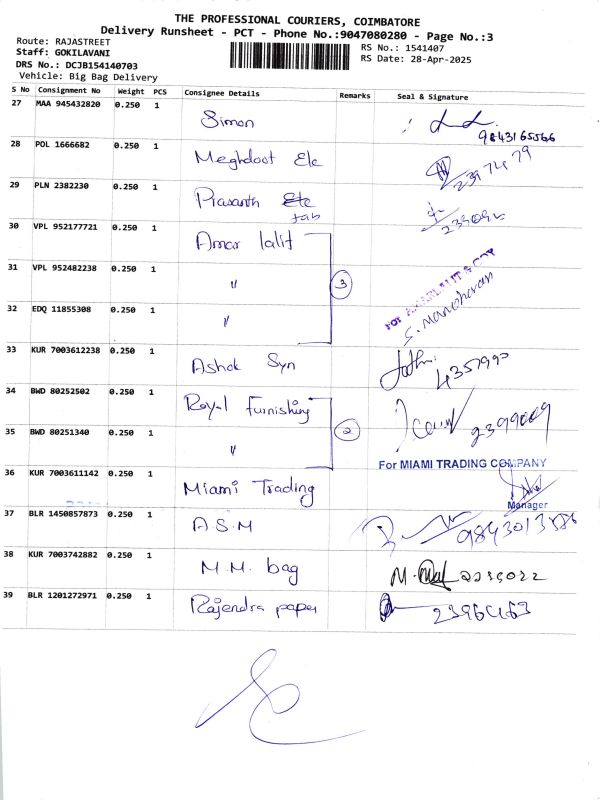 THE PROFESSIONAL COURIERS, COIMBATORE
Delivery Runsheet - PCT - Phone No.:9047080280 - Page No.:3
Route: RAJASTREET
RS No.: 1541407
Staff: GOKILAVANI
RS Date: 28-Apr-2025
DRS No.: DCJB154140703
Vehicle: Big Bag Delivery
S No Consignment No Weight PCS Consignee Details Remarks Seal & Signature
27 MAA 945432820 0.250 1
Simon
9843165566
28 POL 1666682 0.250 1
Meghdoot Ele
2397479
29 PLN 2382230 0.250 1
Prasanth Ele
fab
30 VPL 952177721 0.250 1
Amar lalit
31 VPL 952482238 0.250 1
"
3
FOR AMARLALIT & COY
S. Manoharan
32 EDQ 11855308 0.250 1
"
33 KUR 7003612238 0.250 1
Ashok Syn
4357990
34 BWD 80252502 0.250 1
Royal Furnishing
35 BWD 80251340 0.250 1
"
2
2399009
36 KUR 7003611142 0.250 1
Miami Trading
For MIAMI TRADING COMPANY
Manager
37 BLR 1450857873 0.250 1
A.S.M
38 KUR 7003742882 0.250 1
M.M. bag
39 BLR 1201272971 0.250 1
Rajendra paper